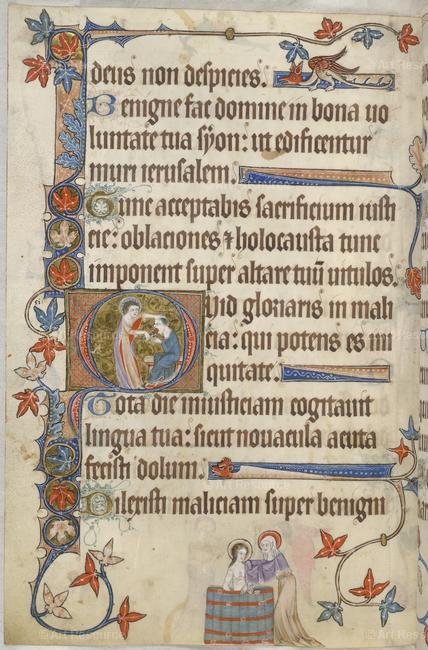 deus non despicies.
Benigne fac domine in bona uo
luntate tua syon: ut edificentur
muri ierusalem.
Tunc acceptabis sacrificium iusti
cie: oblaciones ⁊ holocausta tunc
imponent super altare tuū uitulos.
Quid gloriaris in mali
cia: qui potens es in i
quitate.
Tota die iniusticiam cogitauit
lingua tua: sicut nouacula acuta
fecisti dolum.
Dilexisti maliciam super benigni
© Art Resource